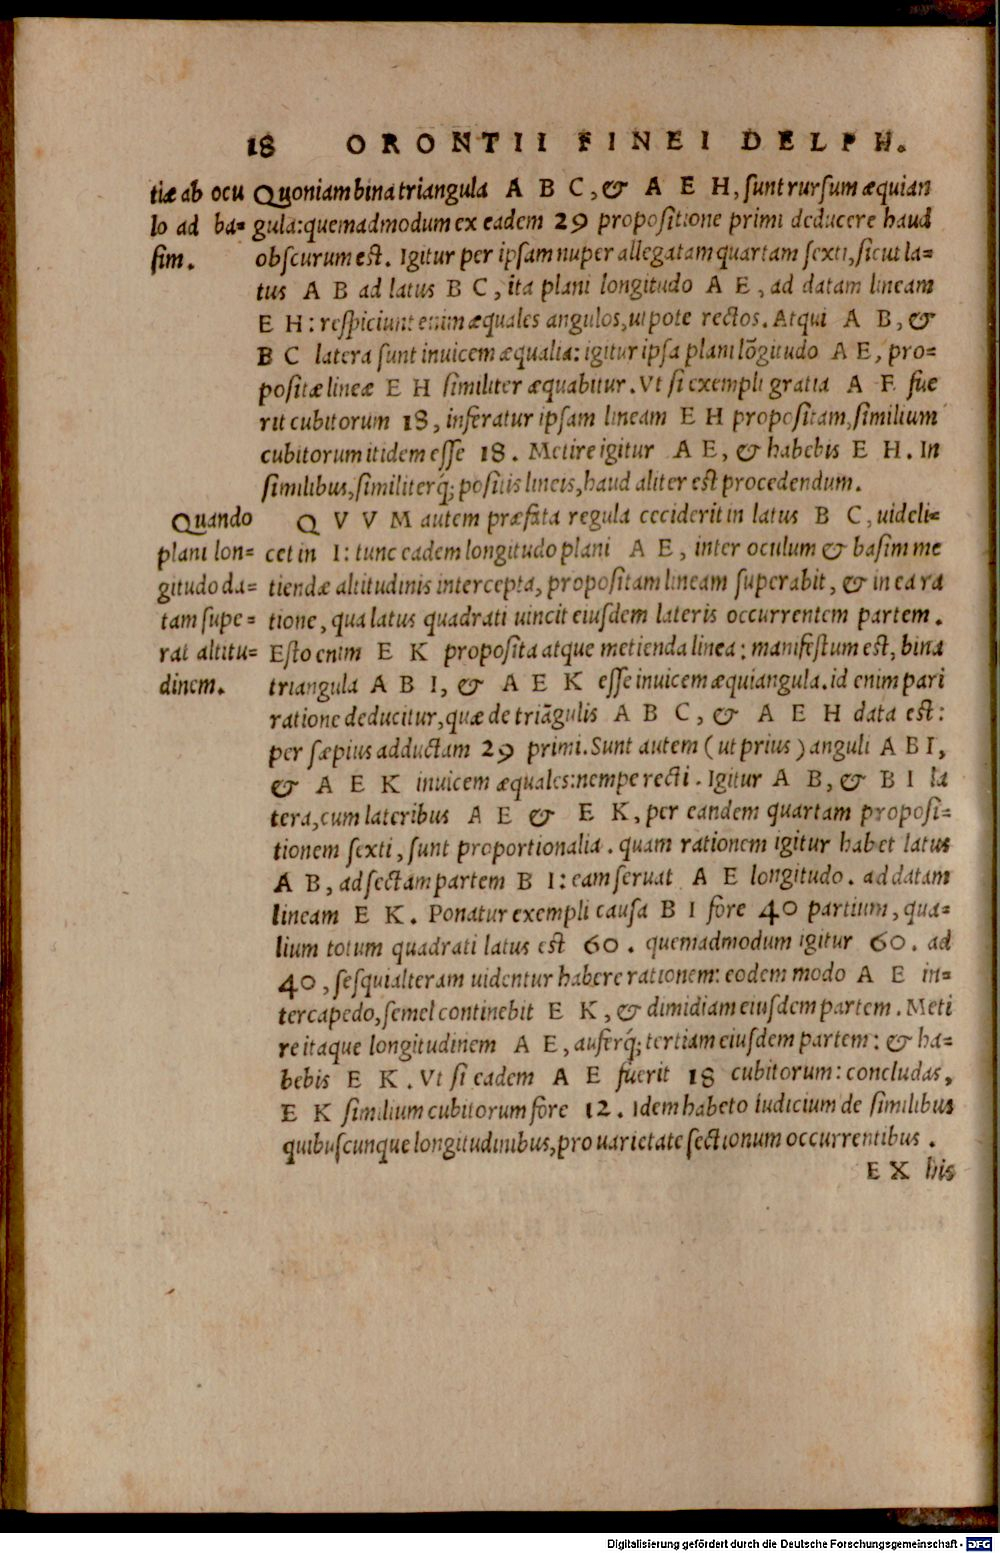 18 ORONTII FINEI DELPH.
tiæ ab ocu
lo ad ba=
sim.
Quoniam bina triangula A B C, & A E H, sunt rursum æquian
gula: quemadmodum ex eadem 29 propositione primi deducere haud
obscurum est. Igitur per ipsam nuper allegatam quartam sexti, sicut la=
tus A B ad latus B C, ita plani longitudo A E, ad datam lineam
E H: respiciunt enim æquales angulos, ut pote rectos. Atqui A B, &
B C latera sunt inuicem æqualia: igitur ipsa plani lõgitudo A E, pro=
positæ lineæ E H similiter æquabitur. Vt si exempli gratia A E fue
rit cubitorum 18, inferatur ipsam lineam E H propositam, similium
cubitorum itidem esse 18. Metire igitur A E, & habebis E H. In
similibus, similiterq́; positis lineis, haud aliter est procedendum.
Quando
plani lon=
gitudo da=
tam supe=
rat altitu=
dinem.
Q V V M autem præfata regula ceciderit in latus B C, uideli=
cet in I: tunc eadem longitudo plani A E, inter oculum & basim me
tiendæ altitudinis intercepta, propositam lineam superabit, & in ea ra
tione, qua latus quadrati uincit eiusdem lateris occurrentem partem.
Esto enim E K proposita atque metienda linea: manifestum est, bina
triangula A B I, & A E K esse inuicem æquiangula. id enim pari
ratione deducitur, quæ de triãgulis A B C, & A E H data est:
per sæpius adductam 29 primi. Sunt autem (ut prius) anguli A B I,
& A E K inuicem æquales: nempe recti. Igitur A B, & B I la
tera, cum lateribus A E & E K, per eandem quartam proposi=
tionem sexti, sunt proportionalia. quam rationem igitur habet latus
A B, ad sectam partem B I: eam seruat A E longitudo. ad datam
lineam E K. Ponatur exempli causa B I fore 40 partium, qua=
lium totum quadrati latus est 60. quemadmodum igitur 60. ad
40, sesquialteram uidentur habere rationem: eodem modo A E in=
tercapedo, semel continebit E K, & dimidiam eiusdem partem. Meti
re itaque longitudinem A E, auferq́; tertiam eiusdem partem: & ha=
bebis E K. Vt si eadem A E fuerit 18 cubitorum: concludas,
E K similium cubitorum fore 12. Idem habeto iudicium de similibus
quibuscunque longitudinibus, pro uarietate sectionum occurrentibus.
E X his
Digitalisierung gefördert durch die Deutsche Forschungsgemeinschaft - DFG